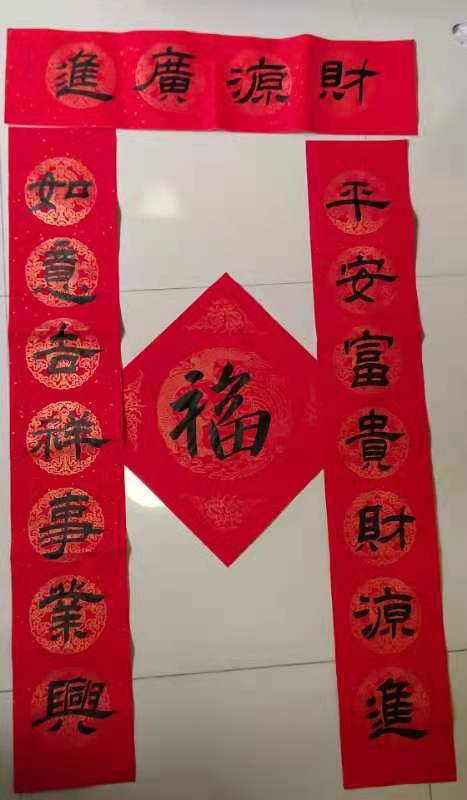 財源廣進
平安富貴財源進
如意吉祥事業興
福